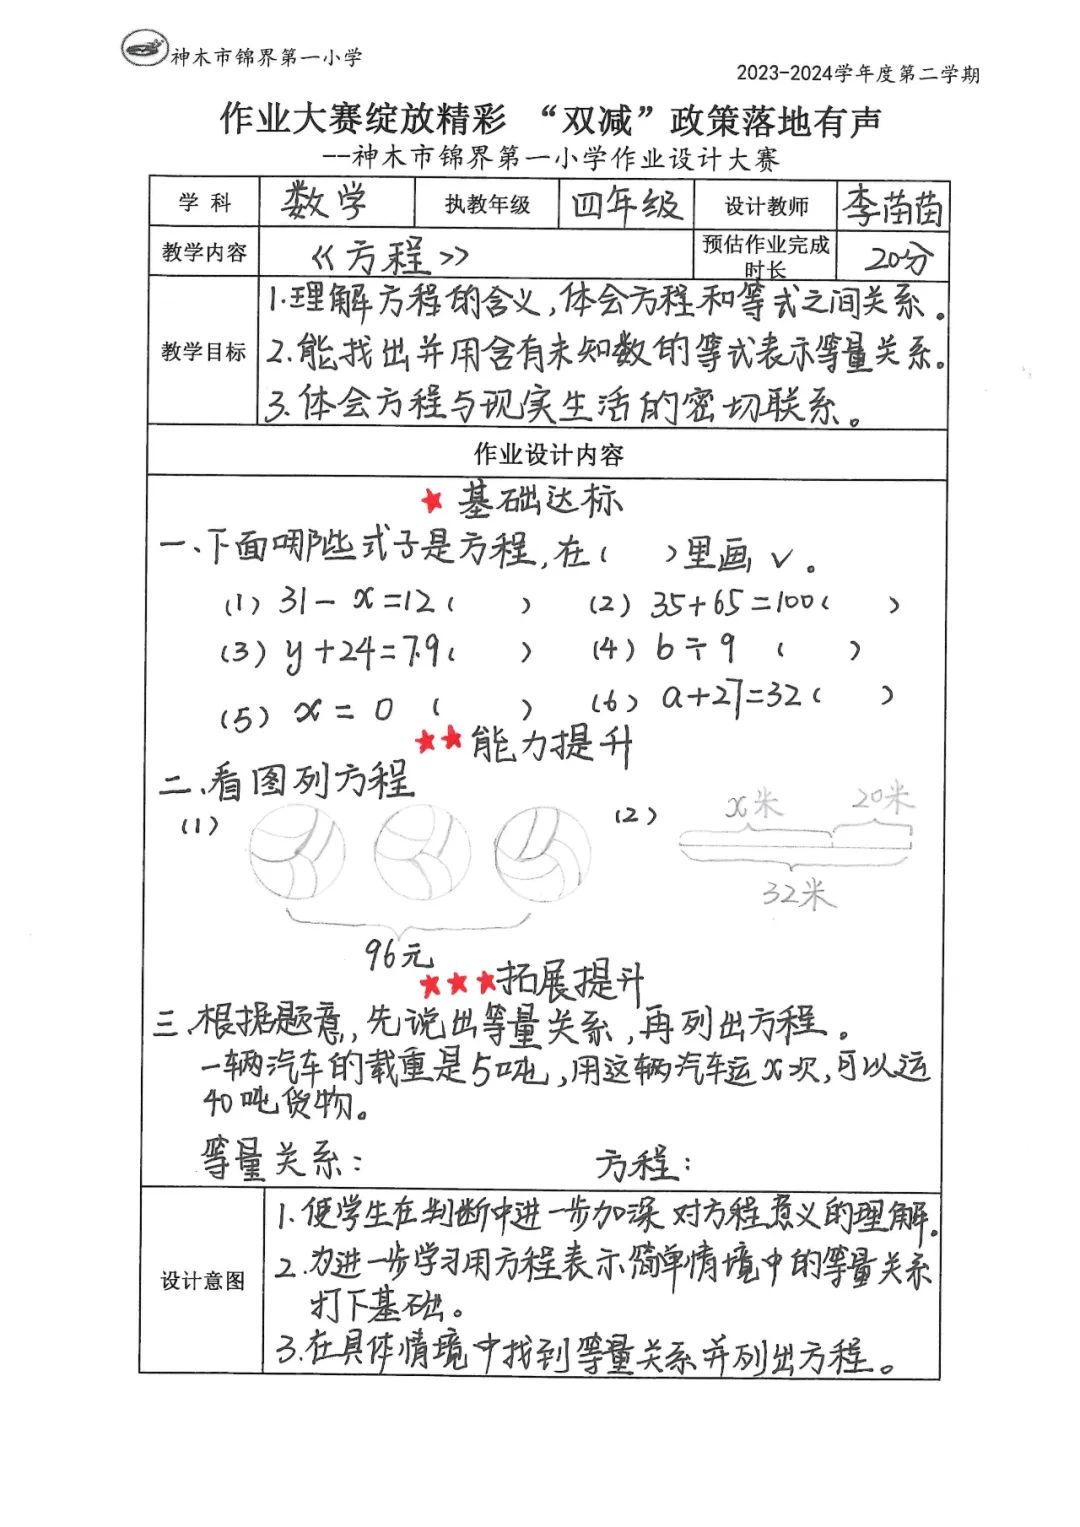 神木市锦界第一小学
2023-2024学年度第二学期
作业大赛绽放精彩 “双减”政策落地有声
--神木市锦界第一小学作业设计大赛
学 科 数学 执教年级 四年级 设计教师 李苗苗
教学内容 《方程》 预估作业完成时长 20分
教学目标
1.理解方程的含义,体会方程和等式之间关系。
2.能找出并用含有未知数的等式表示等量关系。
3.体会方程与现实生活的密切联系。
作业设计内容
★ 基础达标
一、下面哪些式子是方程,在( )里画√。
(1) 31-x=12( ) (2) 35+65=100( )
(3) y+24=7.9( ) (4) b÷9 ( )
(5) x=0 ( ) (6) a+27=32( )
★★能力提升
二、看图列方程
(1) (2) x米 20米
32米
96元
★★★拓展提升
三、根据题意,先说出等量关系,再列出方程。
一辆汽车的载重是5吨,用这辆汽车运x次,可以运
40吨货物。
等量关系: 方程:
设计意图
1.使学生在判断中进一步加深对方程意义的理解。
2.为进一步学习用方程表示简单情境中的等量关系
打下基础。
3.在具体情境中找到等量关系并列出方程。